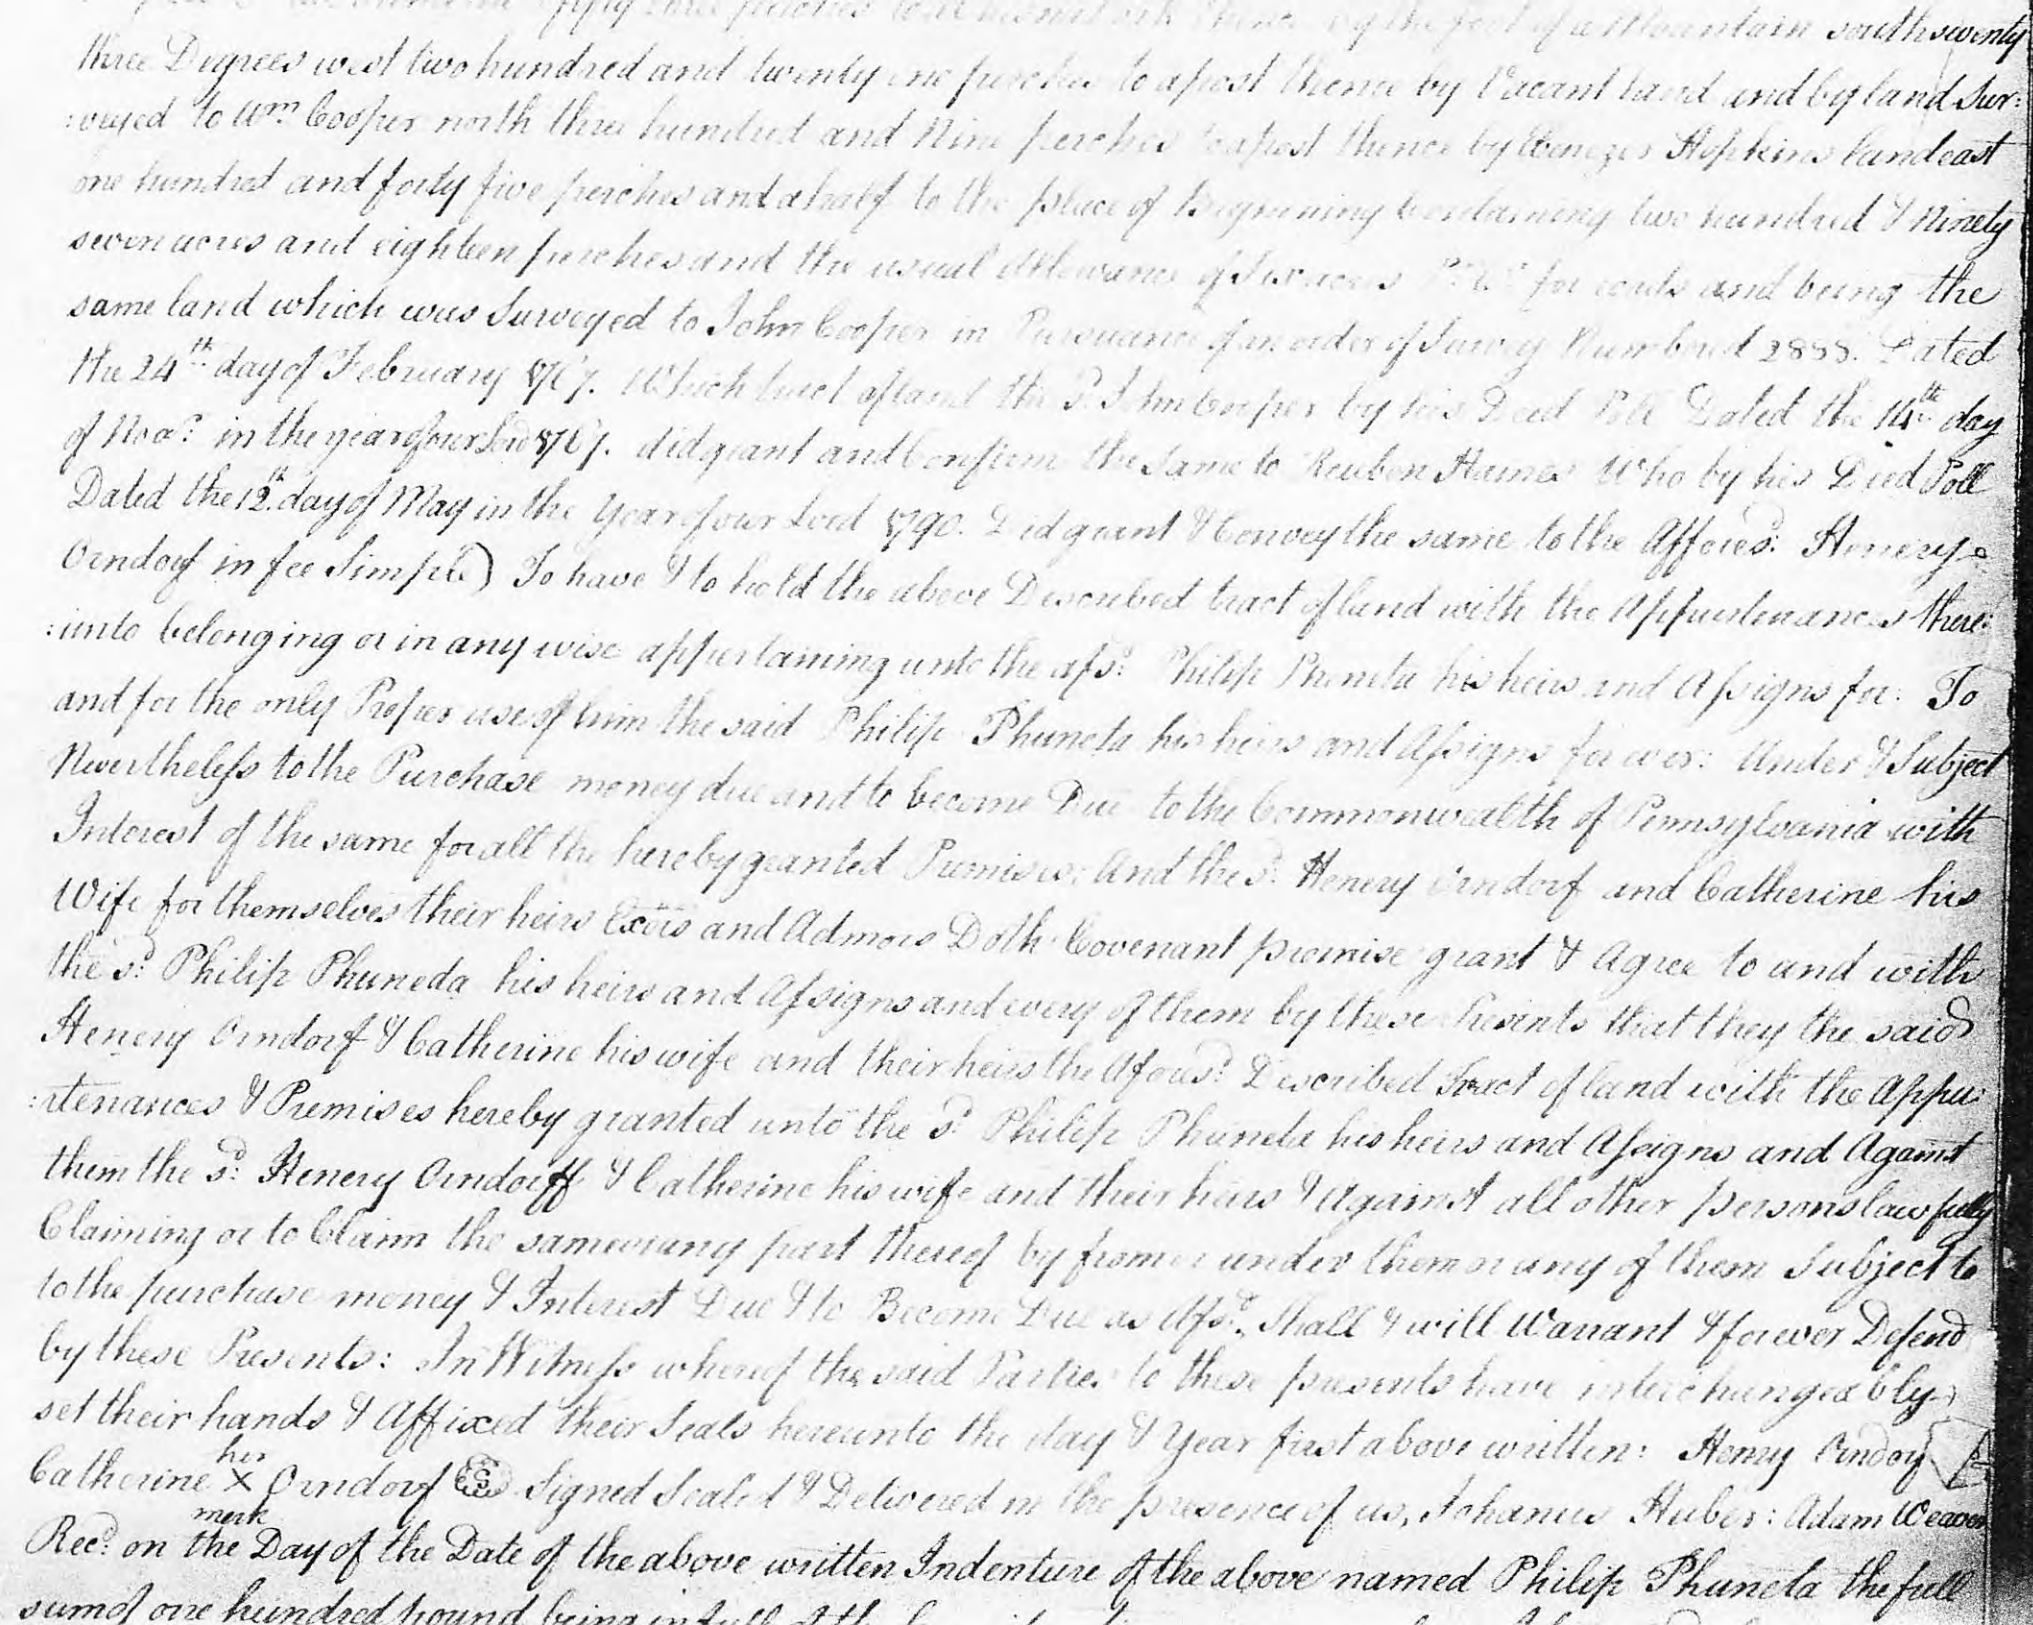 fifty three perches to a thence by the foot of a Mountain south seventy
three Degrees west two hundred and twenty one perches to a post thence by Vacant land and by land Sur:
:veyed to Wm. Cooper north three hundred and Nine perches to a post thence by Ebenezer Hopkins land east
one hundred and forty five perches and a half to the place of Beginning Containing two hundred & Ninety
seven acres and eighteen perches and the usual Allowance of Six acres for roads and being the
same land which was Surveyed to John Cooper in Pursuance of an order of Survey Numbered 2888. Dated
the 24th day of February 1767. Which tract of land the sd. John Cooper by his Deed Poll Dated the 14th day
of in the year of our Lord 1767. did grant and Confirm the Same to Reuben Haines Who by his Deed Poll
Dated the 12th day of May in the Year of our Lord 1790. Did grant & Convey the same to the Affores'd: Henery
Orndorf in fee Simple) To have & to hold the above Described tract of land with the Appurtenances there:
:unto belonging or in any wise appertaining unto the afsd: Philip Phuneta his heirs and Assigns for: To
and for the only Proper use of him the said Philip Phuneta his heirs and Assigns for ever: Under & Subject
Nevertheless to the Purchase money due and to become Due to the Commonwealth of Pennsylvania with
Interest of the same for all the hereby granted Premises: And the sd. Henery Orndorf and Catherine his
Wife for themselves their heirs Exors and Admors Doth Covenant promise grant & Agree to and with
the sd: Philip Phuneda his heirs and Assigns and every of them by these Presents that they the said
Henery Orndorf & Catherine his wife and their heirs the Afores'd: Described Tract of land with the Appu:
:rtenances & Premises hereby granted unto the sd: Philip Phuneta his heirs and Assigns and Against
them the sd: Henery Orndorff & Catherine his wife and their heirs & Against all other persons lawfully
Claiming or to Claim the same or any part thereof by from or under them or any of them Subject to
to the purchase money & Interest Due & to Become Due as Afsd. Shall & will Warrant & forever Defend
by these Presents: In Witness whereof the said Parties to these presents have interchangeably
set their hands & Affixed their Seals hereunto the day & Year first above written: Henry Orndorf
Catherine her X mark Orndorf Signed Sealed & Delivered in the presence of us, Johannes Huber: Adam Weaver
Recd. on the Day of the Date of the above written Indenture of the above named Philip Phuneta the full
sum of one hundred pound being in full of the